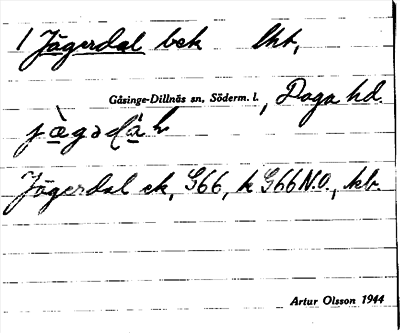 1 Jägerdal bek lht,
Gåsinge-Dillnäs sn, Söderm. l., Daga hd.
Jägerdal ek, G66, k G66 N.O., kb.
Artur Olsson 1944